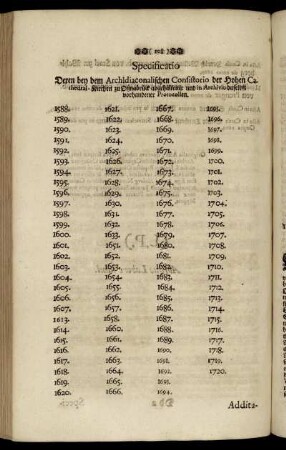 Specificatio
Deren bey dem Archidiaconalischen Consistorio der Hohen Ca-
thedral-Kirchen zu Oßnabrück abgehaltene und in Archivio daselbst
vorhandener Protocollen.
1588. 1621. 1667. 1695.
1589. 1622. 1668. 1696.
1590. 1623. 1669. 1697.
1591. 1624. 1670.
1592. 1625. 1671.
1593. 1626. 1672. 1700.
1594. 1627. 1673. 1701.
1595. 1628. 1674.
1596. 1629. 1675. 1703.
1597. 1630. 1676. 1704.
1598. 1631. 1677. 1705.
1599. 1632. 1678. 1706.
1600. 1633. 1679. 1707.
1601. 1651. 1680. 1708.
1602. 1652. 1681. 1709.
1603. 1653. 1682. 1710.
1604. 1654. 1683. 1711.
1605. 1655. 1684. 1712.
1606. 1656. 1685. 1713.
1607. 1657. 1686. 1714.
1613. 1658. 1687. 1715.
1614. 1660. 1688. 1716.
1615. 1661. 1689.
1616. 1662. 1690. 1718.
1617. 1663. 1691. 1719.
1618. 1664. 1692. 1720.
1619. 1665. 1693.
1620. 1666. 1694.
Addita-